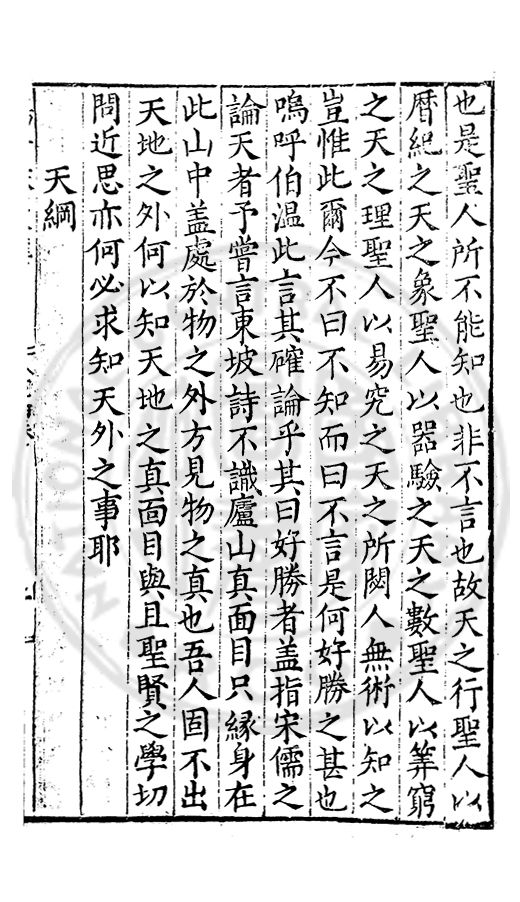 也是聖人所不能知也非不言也故天之行聖人以
曆紀之天之象聖人以器驗之天之數聖人以筭窮
之天之理聖人以易究之天之所閟人無術以知之
豈惟此爾今不曰不知而曰不言是何好勝之甚也
嗚呼伯溫此言其確論乎其曰好勝者盖指宋儒之
論天者予嘗言東坡詩不識廬山真面目只緣身在
此山中盖處於物之外方見物之真也吾人固不出
天地之外何以知天地之真面目與且聖賢之學切
問近思亦何必求知天外之事耶
天綱